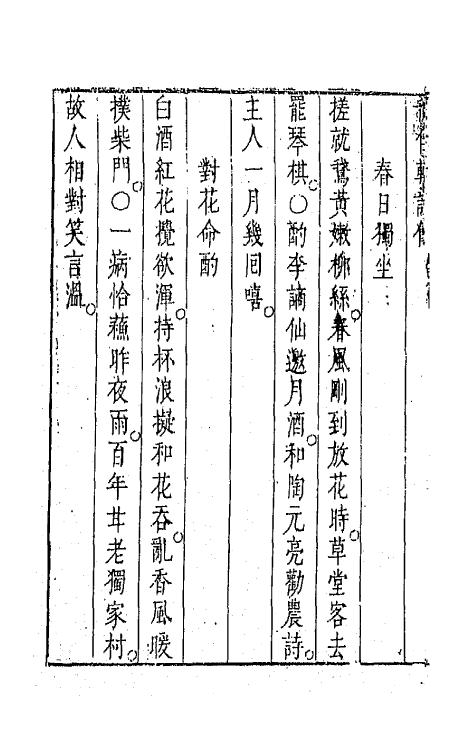 春日獨坐
搓就鵞黃嫩柳絲。春風剛到放花時。草堂客去
罷琴棋。○酌李謫仙邀月酒。和陶元亮勸農詩。
主人一月幾回嘻。
對花命酌
白酒紅花攪欲渾。持杯浪擬和花吞。亂香風暖
撲柴門。○一病恰蘇昨夜雨。百年丼老獨家村。
故人相對笑言溫。